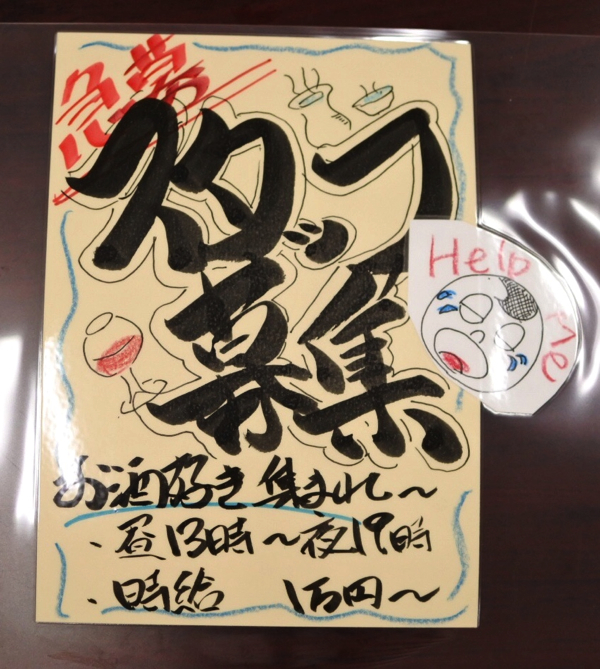 急募
スタッフ
募集
Help me
お酒好き集まれ〜
・昼13時〜夜19時
・時給 1万円〜